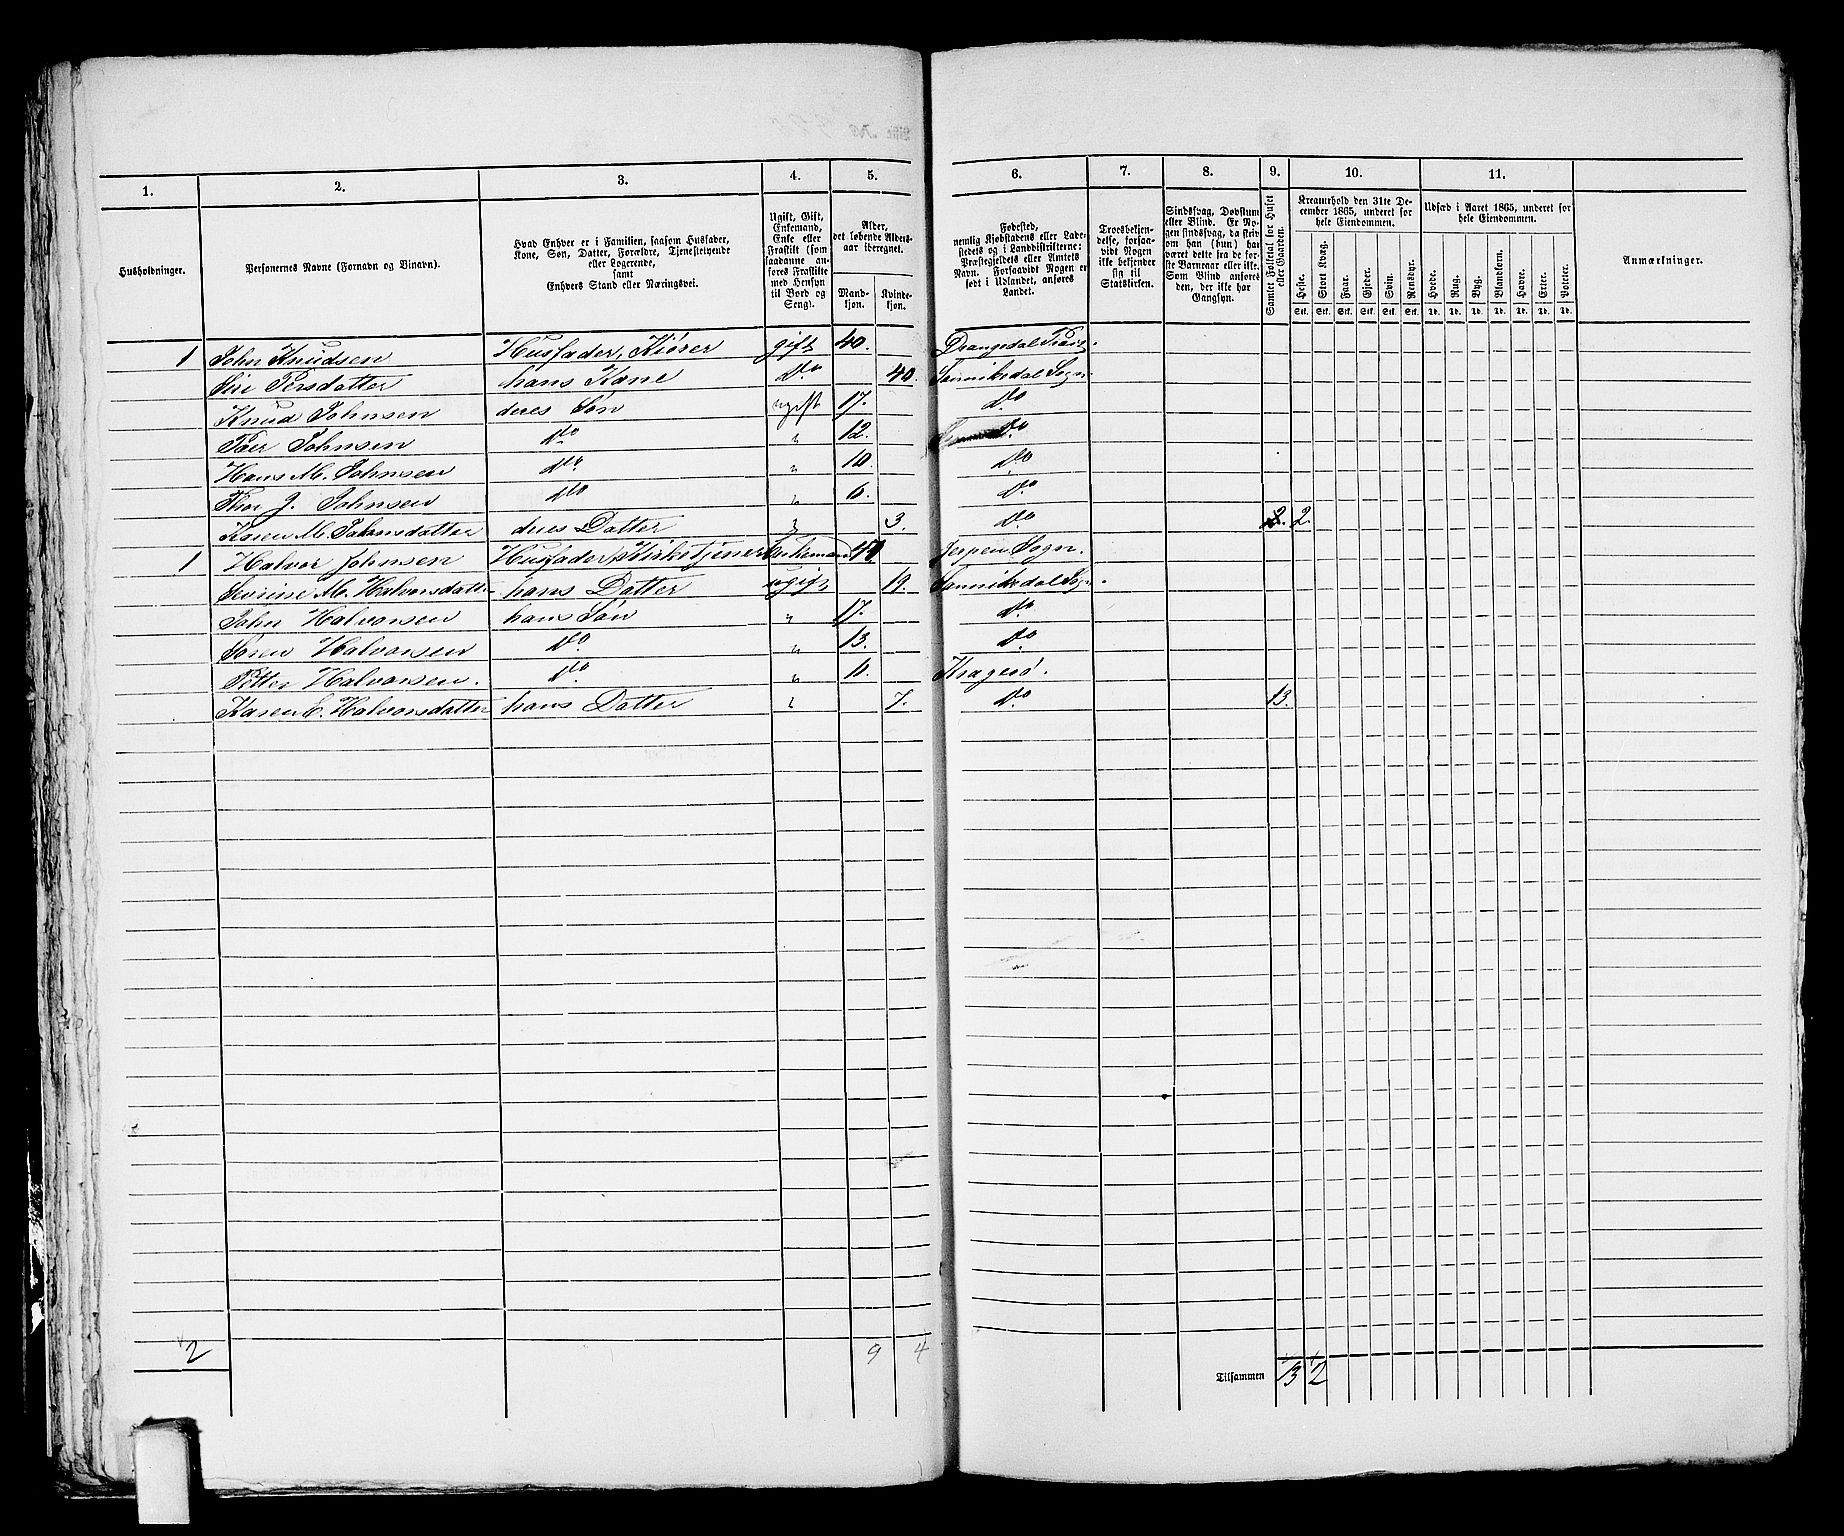 1. 2. 3. 4. 5. 6. 7. 8. 9. 10. 11.
Husholdninger.
Personernes Navne (Fornavn og Binavn).
Hvad Enhver er i Familien, saasom Husfader,
Kone, Søn, Datter, Forældre, Tjenestetyende
eller Logerende,
samt
Enhvers Stand eller Næringsvei.
Ugift, Gift,
Enkemand,
Enke eller
Fraskilt (som
saadanne an-
føres Fraskilte
med Hensyn
til Bord og
Seng).
Alder,
det løbende Alders-
aar iberegnet.
Mand-
kjøn.
Kvinde-
kjøn.
Fødested,
nemlig Kjøbstadens eller Lade-
stedets og i Landdistrikterne:
Præstegjeldets eller Amtets
Navn. Forsaavidt Nogen er
født i Udlandet, anføres
Landet.
Troesbekjen-
delse, forsaa-
vidt Nogen
ikke bekjender
sig til
Statskirken.
Sindssvag, Døvstum
eller Blind. Er No-
gen sindssvag, da skriv
om han (hun) har
været dette fra de før-
ste Barneaar eller ikke.
Som Blind anføres
den, der ikke har
Gangsyn.
Samlet Folketal for Huset
eller Gaarden.
Kreaturhold den 31te De-
cember 1865, underet for
hele Eiendommen.
Heste. Stort Kvæg. Faar. Gjeder. Svin. Rensdyr.
Stk. Stk. Stk. Stk. Stk. Stk.
Udsæd i Aaret 1865, underet for
hele Eiendommen.
Hvede. Rug. Byg. Blandkorn. Havre. Erter. Poteter.
Td. Td. Td. Td. Td. Td. Td.
Anmærkninger.
1 John Knudsen Husfader, Kiører gift 40. Drangedal Præstg.
Siri Persdatter hans Kone Do 40. Sannikedal Sogn
Knud Johnsen deres Søn ugift 17. Do
Peer Johnsen Do " 12. Do
Hans M. Johnsen Do " 10. Do
Thor J. Johnsen Do " 6. Do
Karen M. Johnsdatter deres Datter " 3. Do 2.
1 Halvor Johnsen Husfader, Kirketjener Enkemand Jerpen Sogn.
Sevrine M. Halvorsdatter hans Datter ugift 19. Sannikedal Sogn.
John Halvorsen hans Søn " 17. Do
Søren Halvorsen Do " 13. Do
Petter Halvorsen. Do " Kragerö.
Karen C. Halvorsdatter hans Datter " 7. Do 13.
2 9 4 Tilsammen 13 2